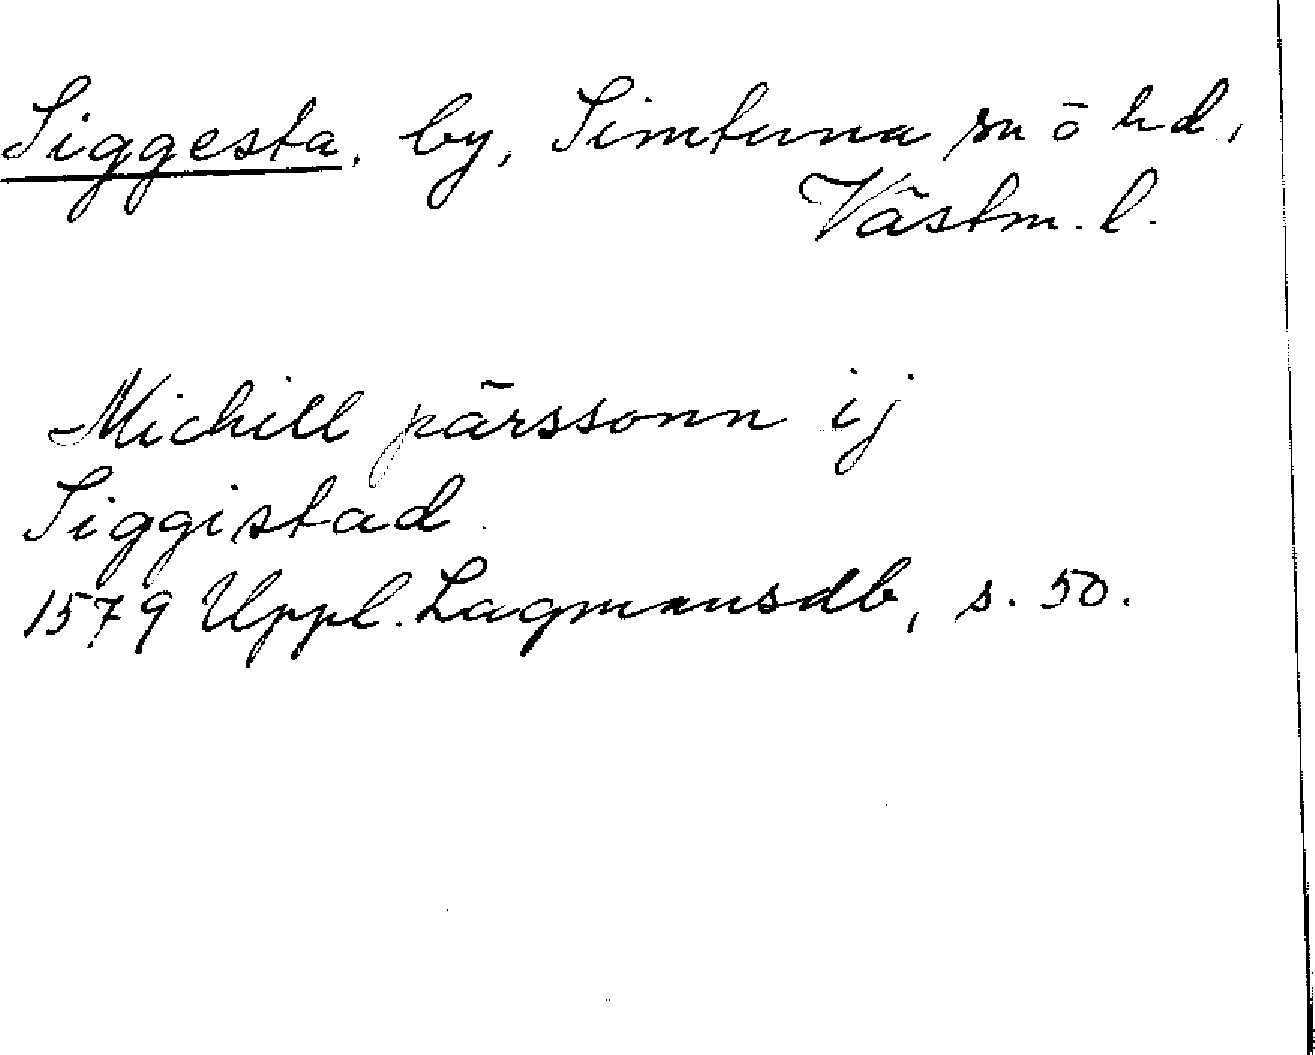 Siggesta, by, Simtuna sn ö hd,
Västm. l.
Michill pärssonn ij
Siggistad.
1579 Uppl. Lagmansdb, s. 50.